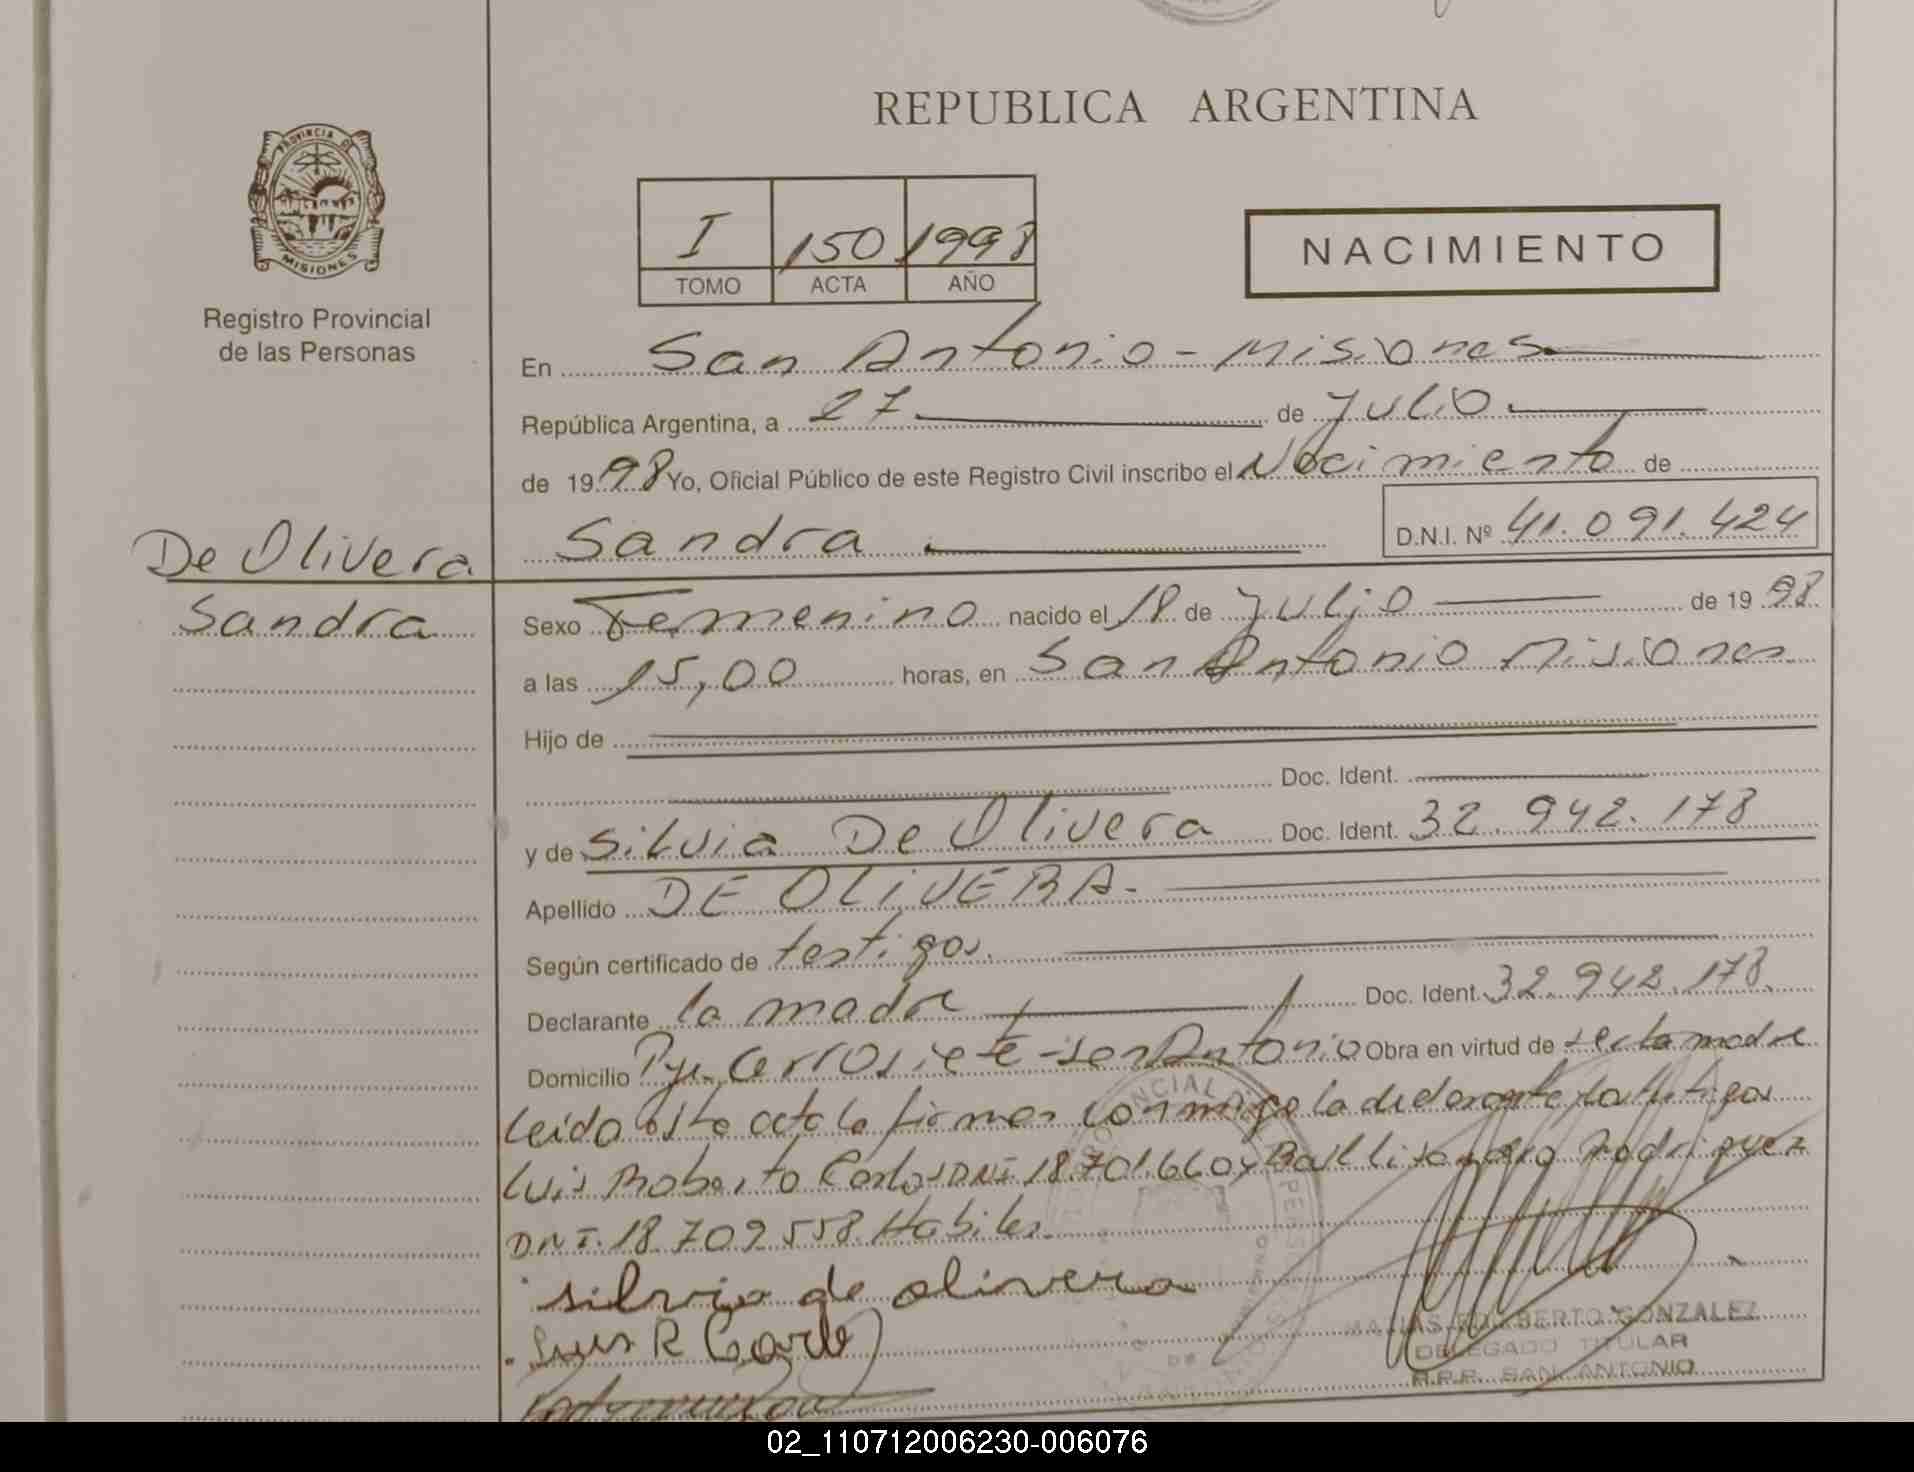 REPUBLICA ARGENTINA
PROVINCIA DE
MISIONES
Registro Provincial
de las Personas
I 150 1998
TOMO ACTA AÑO
NACIMIENTO
En San Antonio - Misiones
República Argentina, a 27 de Julio
de 1998 Yo, Oficial Público de este Registro Civil inscribo el Nacimiento de
Sandra D.N.I. Nº 41.091.424
De Olivera
Sandra
Sexo Femenino nacido el 18 de Julio de 1998
a las 15,00 horas, en San Antonio Misiones
Hijo de
Doc. Ident.
y de Silvia De Olivera Doc. Ident. 32.942.178
Apellido DE OLIVERA.
Según certificado de testigos.
Declarante la madre Doc. Ident. 32.942.178
Domicilio Pje. Cerro Siete - San Antonio Obra en virtud de ser la madre
Leído este acta la firman conmigo la declarante, los testigos
Luis Roberto Carlos DNI 18.701.660 y Rodriguez
DNI. 18.709.558. Habiles.
silvia de olivera
Luis R
GONZALEZ
DELEGADO TITULAR
R.P.P. SAN ANTONIO
02_110712006230-006076